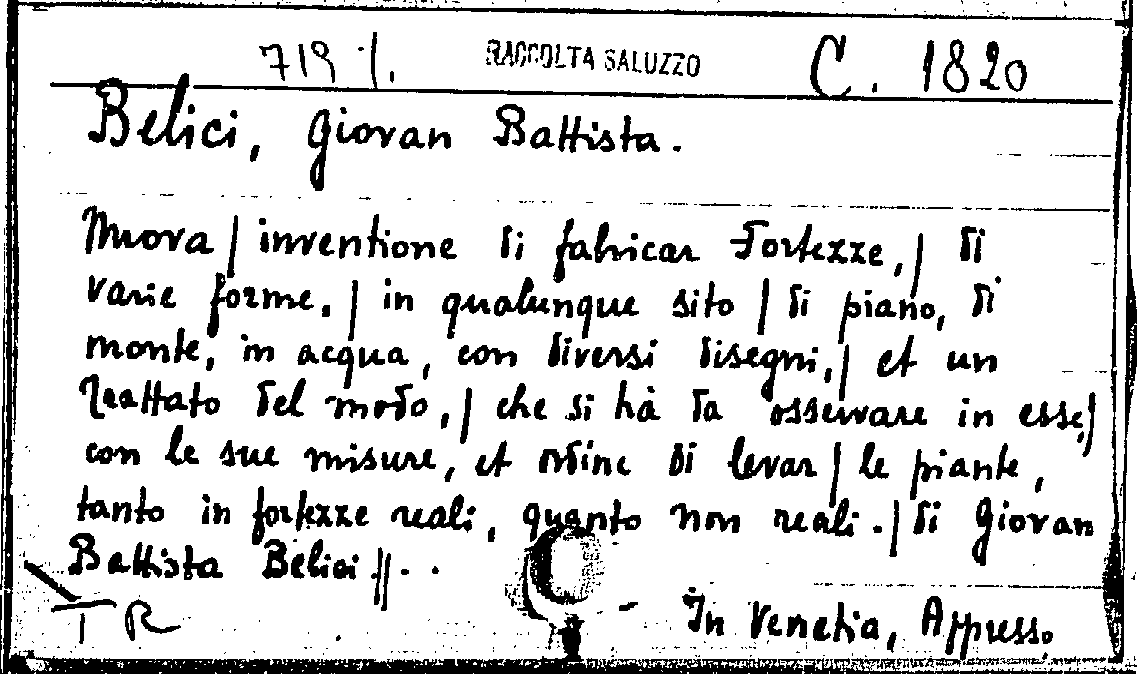 719 /. RACCOLTA SALUZZO C. 1820
Belici, Giovan Battista.
Nuova | inventione di fabricar Fortezze, | di
varie forme. | in qualunque sito | di piano, di
monte, in acqua, con diversi disegni, | et un
Trattato del modo, | che si hà da osservare in esse, |
con le sue misure, et ordine di levar | le piante,
tanto in fortezze reali, quanto non reali. | di Giovan
Battista Belici ||. . .
In Venetia, Appresso
TR